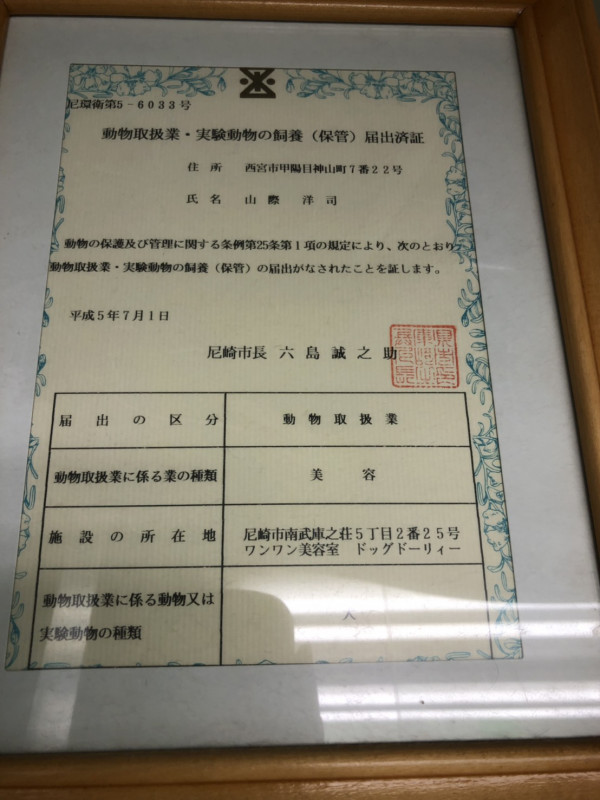 尼環衛第5-6033号
動物取扱業・実験動物の飼養(保管)届出済証
住所 西宮市甲陽目神山町7番22号
氏名 山際 洋司
動物の保護及び管理に関する条例第25条第1項の規定により、次のとおり
動物取扱業・実験動物の飼養(保管)の届出がなされたことを証します。
平成5年7月1日
尼崎市長 六島誠之助
届出の区分 動物取扱業
動物取扱業に係る業の種類 美容
施設の所在地 尼崎市南武庫之荘5丁目2番25号
ワンワン美容室 ドッグドーリィー
動物取扱業に係る動物又は
実験動物の種類 犬